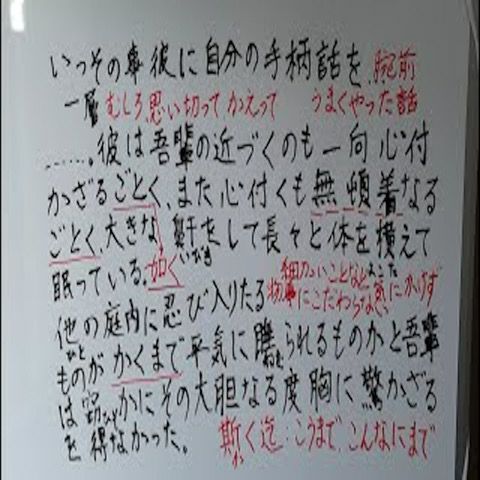 いっその事彼に自分の手柄話を 腕前
一層 むしろ、思い切って かえって うまくやった話
……。彼は吾輩の近づくのも一向心付
かざるごとく、また心付くも無頓着なる
ごとく、大きな鼾をして長々と体を横えて
いびき よこた
眠っている。如く 細かいことなど気にかけず
物事にこだわらない
他の庭内に忍び入りたる
ひと
ものがかくまで平気に睡られるものかと吾輩
ねむ
は窃かにその大胆なる度胸に驚かざる
を得なかった。 斯く迄:こうまで、こんなにまで
か